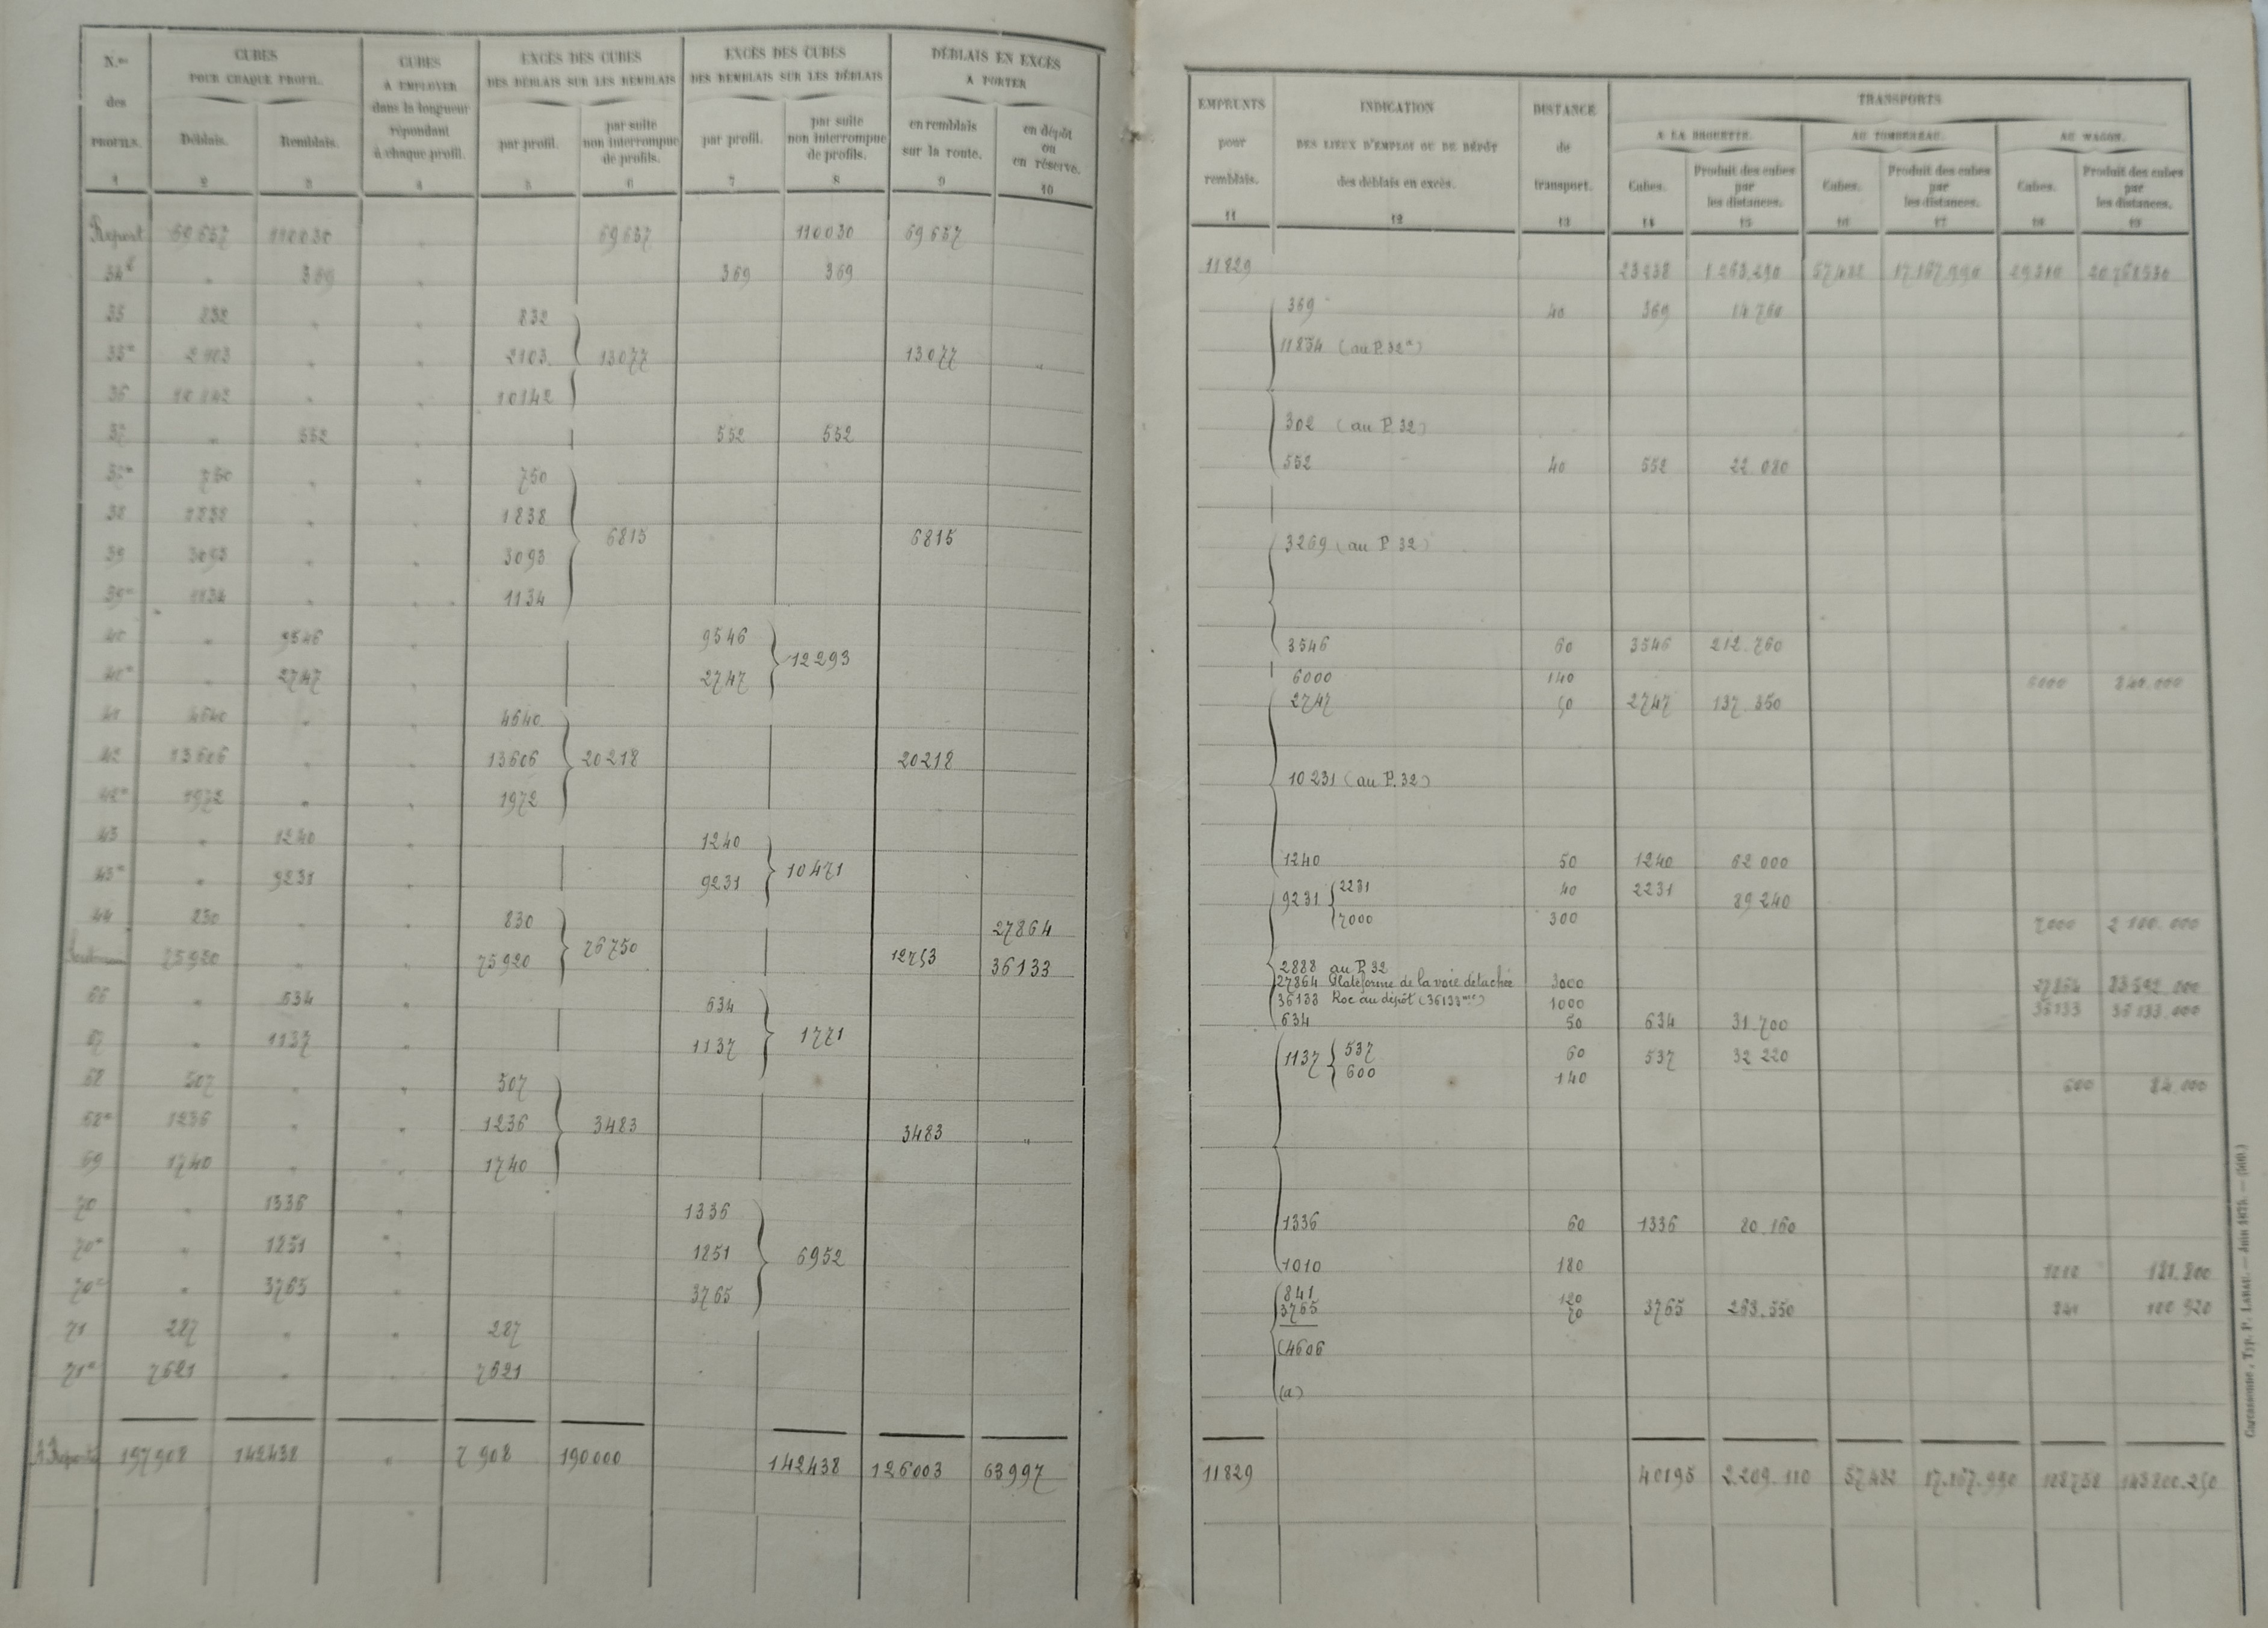 N.os des PROFILS. 1
CUBES POUR CHAQUE PROFIL.
Déblais. 2
Remblais. 3
CUBES A EMPLOYER dans la longueur répondant à chaque profil. 4
EXCÈS DES CUBES DES DÉBLAIS SUR LES REMBLAIS
par profil. 5
par suite non interrompue de profils. 6
EXCÈS DES CUBES DES REMBLAIS SUR LES DÉBLAIS
par profil. 7
par suite non interrompue de profils. 8
DÉBLAIS EN EXCÈS A PORTER
en remblais sur la route. 9
en dépôt ou en réserve. 10
Report 69637 110030 " 69637 110030 69637
34 " 369 " 369 369
35 832 " " 832
35a 2103 " " 2103 13077 13077 "
36 10142 " " 10142
37 " 552 " 552 552
37a 750 " " 750
38 1838 " " 1838
6815 6815
39 3093 " " 3093
39a 1134 " " 1134
40 " 9546 " 9546
12293
40a " 2747 " 2747
41 4640 " " 4640
42 13606 " " 13606 20218 20218
42a 1972 " " 1972
43 " 1240 " 1240
10471
43a " 9231 " 9231
44 830 " " 830 27864
76750 12753 36133
75920 " " 75920
66 " 634 " 634
1771
67 " 1137 " 1137
68 507 " " 507
68a 1236 " " 1236 3483 3483 "
69 1740 " " 1740
70 " 1336 " 1336
70a " 1251 " 1251 6952
70 " 3765 " 3765
71 287 " " 287
71a 7621 " " 7621
A Reporter 197908 142438 " 7908 190000 142438 126003 63997
EMPRUNTS pour remblais. 11
INDICATION DES LIEUX D'EMPLOI OU DE DÉPÔT des déblais en excès. 12
DISTANCE de transport. 13
TRANSPORTS
A LA BROUETTE.
Cubes. 14
Produit des cubes par les distances. 15
AU TOMBEREAU.
Cubes. 16
Produit des cubes par les distances. 17
AU WAGON.
Cubes. 18
Produit des cubes par les distances. 19
11829 23238 1.263.290 57,432 17.167.990 29310 20.768530
369 40 369 14 760
11834 (au P.32a)
302 (au P.32)
552 40 552 22 080
3269 (au P 32)
3546 60 3546 212.760
6000 140 6000 840.000
2747 50 2747 137.350
10231 (au P.32)
1240 50 1240 62 000
9231 2231 40 2231 89 240
7000 300 7000 2 100.000
2888 au P 32
27864 Plateforme de la voie détachée 3000 27864 83592.000
36133 Roc au dépôt (36133mc) 1000 36133 36133.000
634 50 634 31.700
1137 537 60 537 32 220
600 140 600 84.000
1336 60 1336 80.160
1010 180 1010 181.800
841 120 841 100 920
3765 70 3765 263.550
4606
(a)
11829 40195 2.209.110 57,432 17.167.990 108758 143800.250
Carcassonne, Typ. P. LABAU. — Juin 1875. —